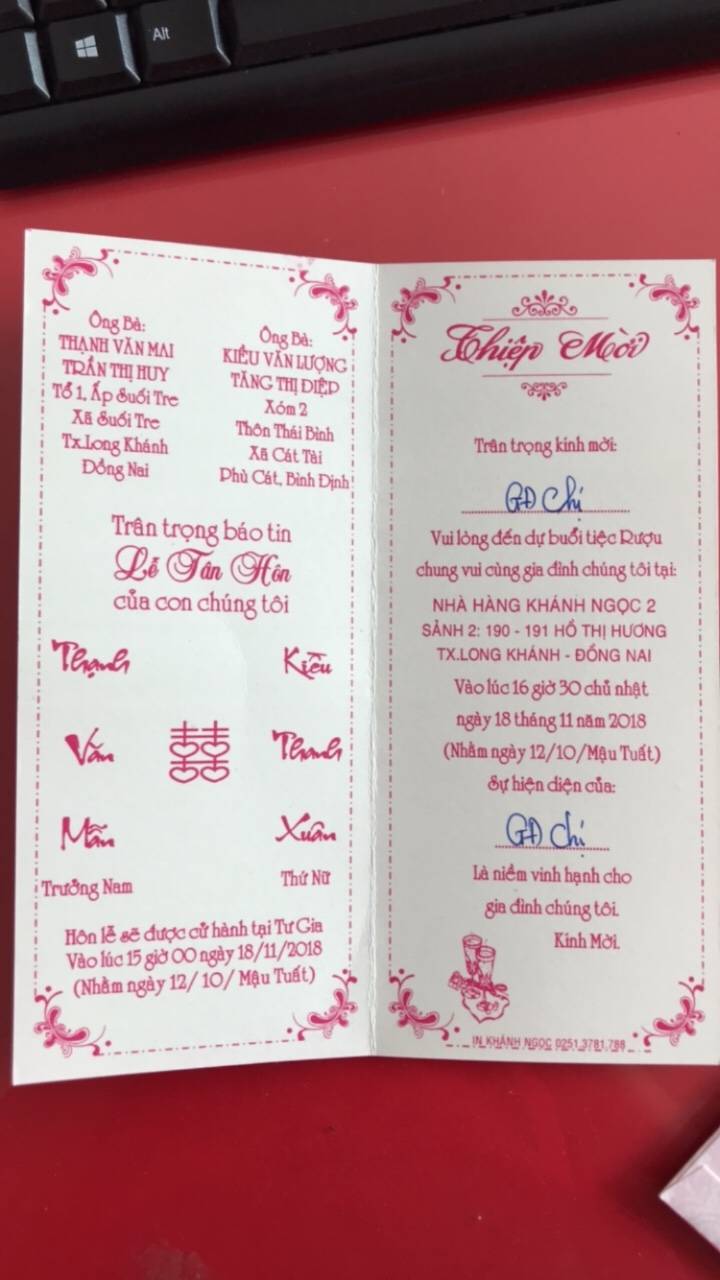 Alt
Ông Bà:
THẠNH VĂN MAI
TRẦN THỊ HUY
Tổ 1, Ấp Suối Tre
Xã Suối Tre
Tx.Long Khánh
Đồng Nai
Ông Bà:
KIỀU VĂN LƯỢNG
TĂNG THỊ ĐIỆP
Xóm 2
Thôn Thái Bình
Xã Cát Tài
Phù Cát, Bình Định
Trân trọng báo tin
Lễ Tân Hôn
của con chúng tôi
Thạnh
Văn
Mẫn
Trưởng Nam
Kiều
Thanh
Xuân
Thứ Nữ
Hôn lễ sẽ được cử hành tại Tư Gia
Vào lúc 15 giờ 00 ngày 18/11/2018
(Nhằm ngày 12/ 10/ Mậu Tuất)
Thiệp Mời
Trân trọng kính mời:
GĐ Chị
Vui lòng đến dự buổi tiệc Rượu
chung vui cùng gia đình chúng tôi tại:
NHÀ HÀNG KHÁNH NGỌC 2
SẢNH 2: 190 - 191 HỒ THỊ HƯƠNG
TX.LONG KHÁNH - ĐỒNG NAI
Vào lúc 16 giờ 30 chủ nhật
ngày 18 tháng 11 năm 2018
(Nhằm ngày 12/10/Mậu Tuất)
Sự hiện diện của:
GĐ Chị
Là niềm vinh hạnh cho
gia đình chúng tôi.
Kính Mời.
IN KHÁNH NGỌC 0251.3781.788